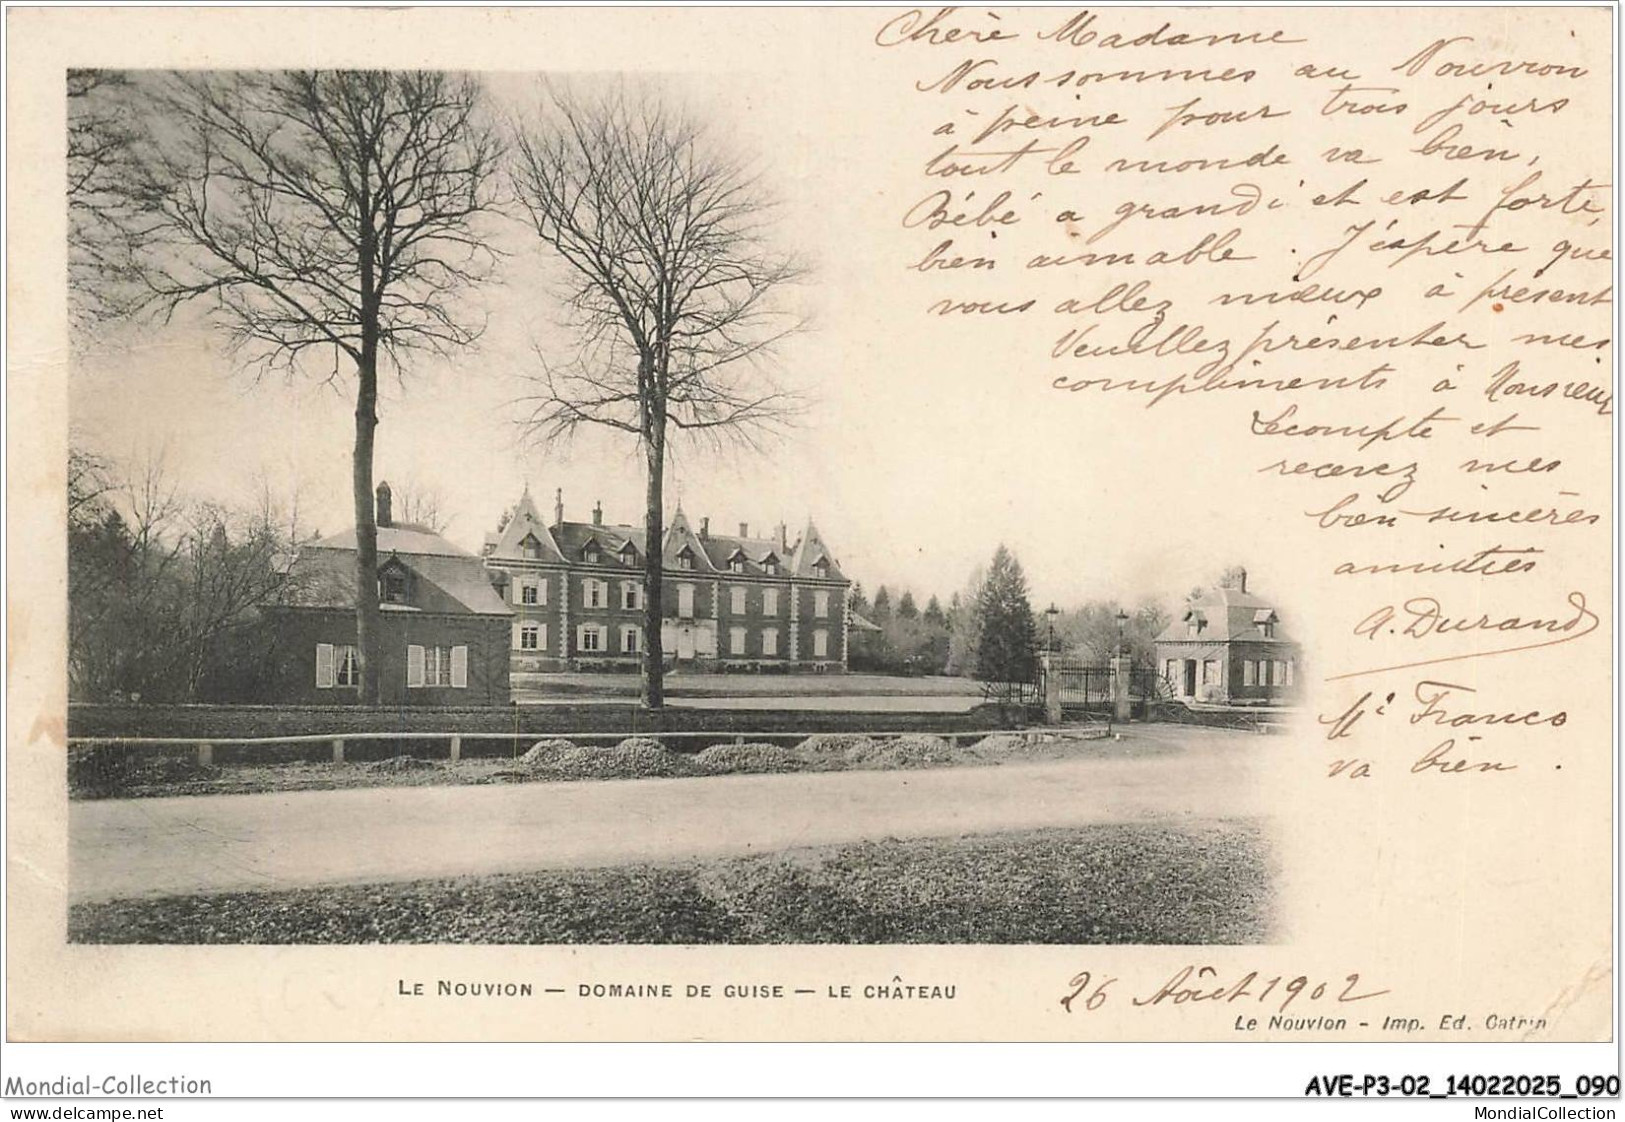 Chère Madame
Nous sommes au Nouvion
à peine pour trois jours
tout le monde va bien,
Bébé a grandi et est forte,
bien aimable. J'espère que
vous allez mieux à présent
Veuillez présenter mes
compliments à Monsieur
Lecompte et
recevez mes
bien sincères
amitiés
A. Durand
Franco
va bien.
LE NOUVION — DOMAINE DE GUISE — LE CHÂTEAU
26 Août 1902
Le Nouvion - Imp. Ed. Catrin
Mondial-Collection
AVE-P3-02_14022025_090
delcampe.net
MondialCollection